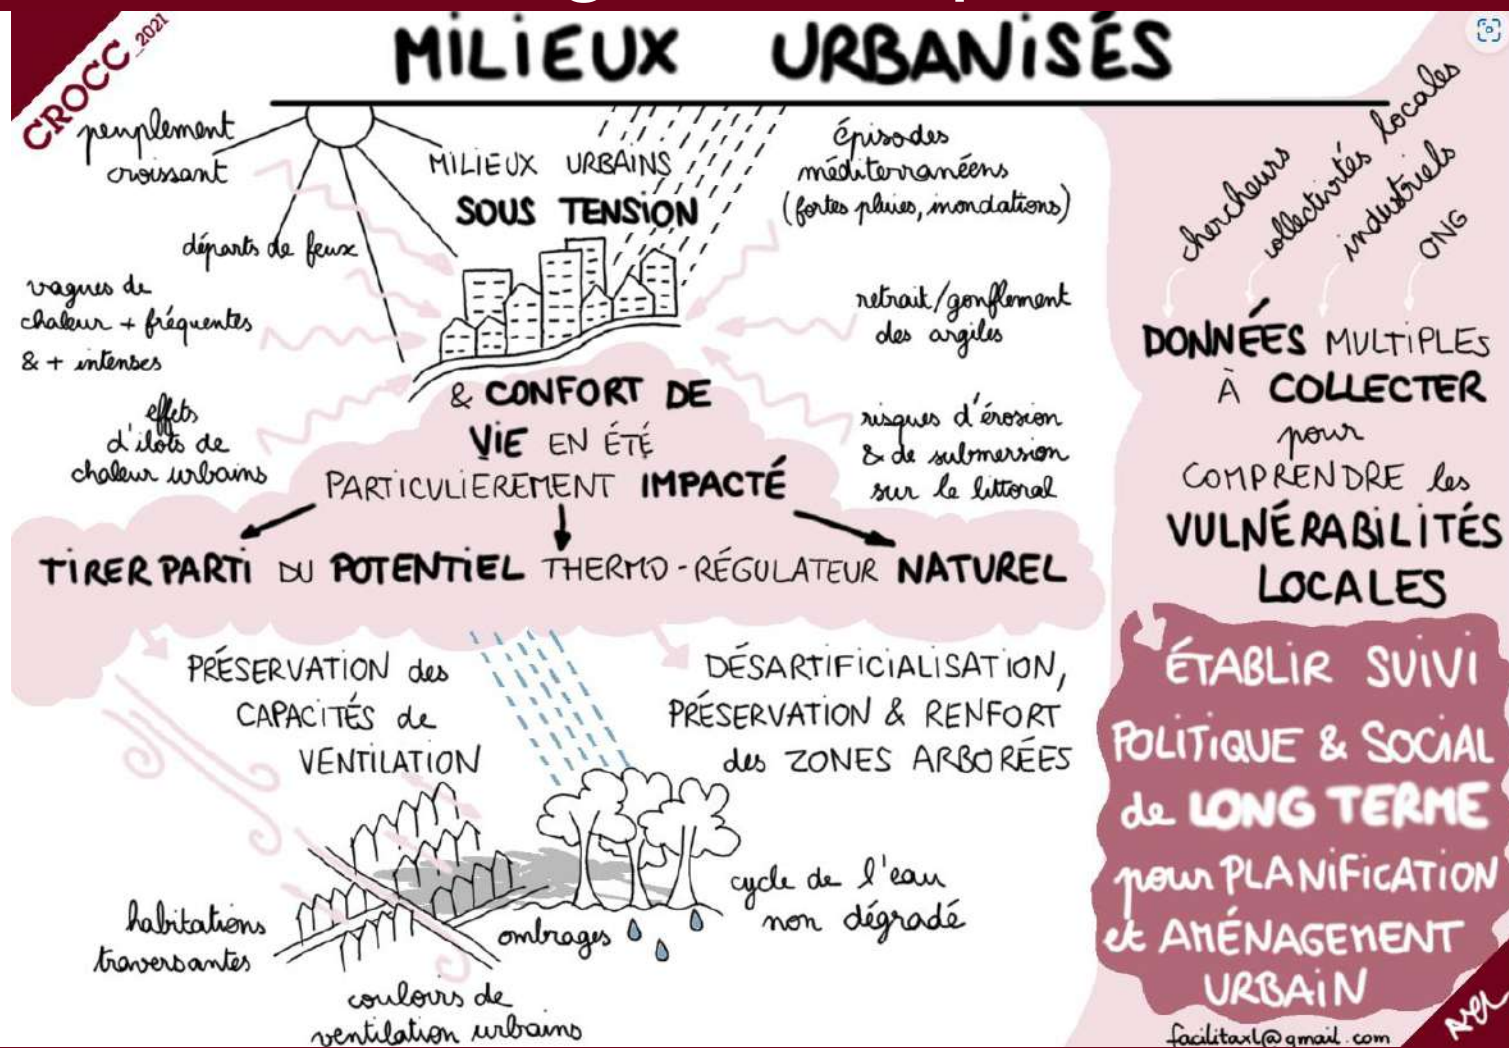 CROCC_2021
MILIEUX URBANISÉS
peuplement
croissant
départs de feux
vagues de
chaleur + fréquentes
& + intenses
effets
d'îlots de
chaleur urbains
MILIEUX URBAINS
SOUS TENSION
épisodes
méditerranéens
(fortes pluies, inondations)
retrait/gonflement
des argiles
risques d'érosion
& de submersion
sur le littoral
& CONFORT DE
VIE EN ÉTÉ
PARTICULIEREMENT IMPACTÉ
TIRER PARTI DU POTENTIEL THERMO-RÉGULATEUR NATUREL
PRÉSERVATION des
CAPACITÉS de
VENTILATION
DÉSARTIFICIALISATION,
PRÉSERVATION & RENFORT
des ZONES ARBORÉES
habitations
traversantes
couloirs de
ventilation urbains
ombrages
cycle de l'eau
non dégradé
chercheurs
collectivités locales
industriels
ONG
DONNÉES MULTIPLES
À COLLECTER
pour
COMPRENDRE les
VULNÉRABILITÉS
LOCALES
ÉTABLIR SUIVI
POLITIQUE & SOCIAL
de LONG TERME
pour PLANIFICATION
et AMÉNAGEMENT
URBAIN
facilitaxl@gmail.com